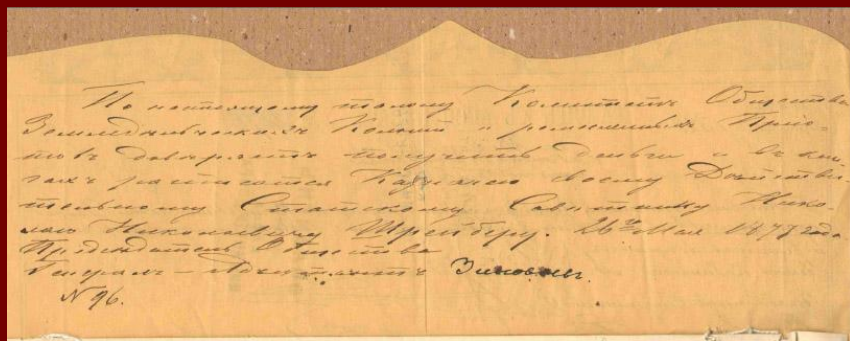 По настоящему талону Комитетъ Общества
Земледѣльческихъ Колоній и ремесленныхъ Прію-
товъ довѣряетъ получить деньги и въ кни-
гахъ расписаться Казначею своему Дѣйстви-
тельному Статскому Совѣтнику Нико-
лаю Николаевичу Шрейберу. 26го Мая 1877 года
Предсѣдатель Общества
Генералъ-Адъютантъ Зиновьевъ.
N 96.